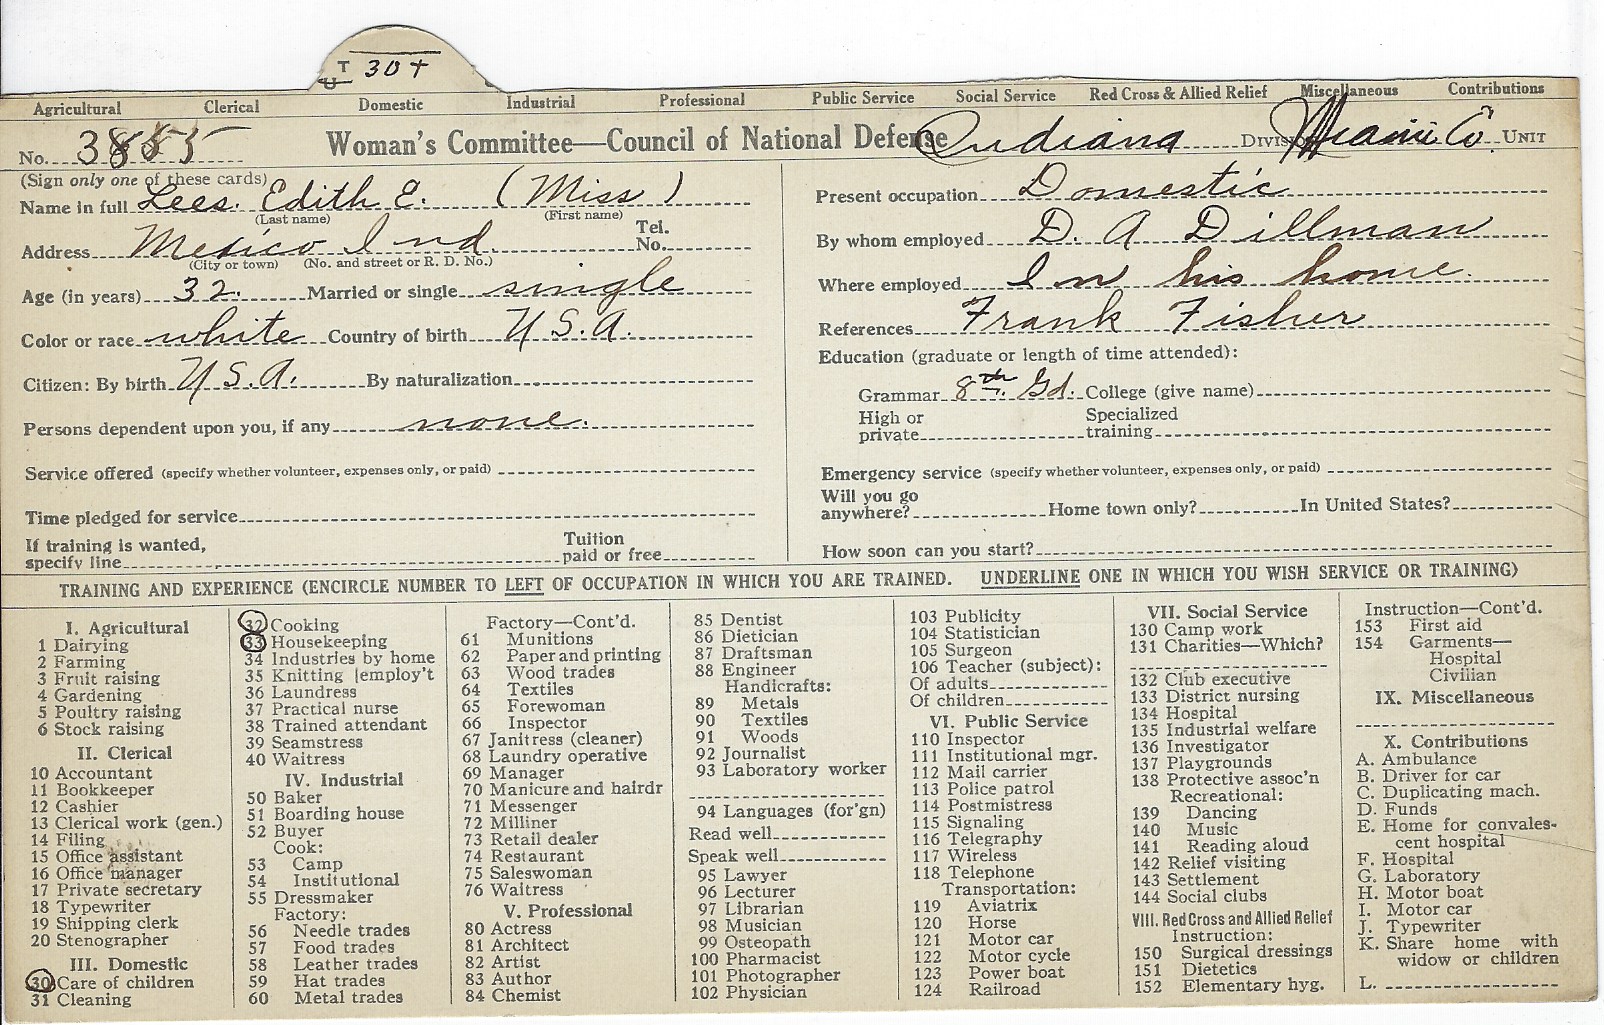 T 30 +
Agricultural Clerical Domestic Industrial Professional Public Service Social Service Red Cross & Allied Relief Miscellaneous Contributions
No. 3855 Woman's Committee—Council of National Defense Indiana Division Miami Co. Unit
(Sign only one of these cards)
Name in full Lees. Edith E. (Miss)
(Last name) (First name)
Address Mexico Ind. Tel. No.
(City or town) (No. and street or R. D. No.)
Age (in years) 32. Married or single single
Color or race white Country of birth U.S.A.
Citizen: By birth U.S.A. By naturalization
Persons dependent upon you, if any none.
Service offered (specify whether volunteer, expenses only, or paid)
Time pledged for service
If training is wanted, specify line Tuition paid or free
Present occupation Domestic
By whom employed D. A Dillman
Where employed In his home.
References Frank Fisher
Education (graduate or length of time attended):
Grammar 8th. Gd. College (give name)
High or private Specialized training
Emergency service (specify whether volunteer, expenses only, or paid)
Will you go anywhere? Home town only? In United States?
How soon can you start?
TRAINING AND EXPERIENCE (ENCIRCLE NUMBER TO LEFT OF OCCUPATION IN WHICH YOU ARE TRAINED. UNDERLINE ONE IN WHICH YOU WISH SERVICE OR TRAINING)
I. Agricultural
1 Dairying
2 Farming
3 Fruit raising
4 Gardening
5 Poultry raising
6 Stock raising
II. Clerical
10 Accountant
11 Bookkeeper
12 Cashier
13 Clerical work (gen.)
14 Filing
15 Office assistant
16 Office manager
17 Private secretary
18 Typewriter
19 Shipping clerk
20 Stenographer
III. Domestic
30 Care of children
31 Cleaning
32 Cooking
33 Housekeeping
34 Industries by home
35 Knitting [employ't
36 Laundress
37 Practical nurse
38 Trained attendant
39 Seamstress
40 Waitress
IV. Industrial
50 Baker
51 Boarding house
52 Buyer
Cook:
53 Camp
54 Institutional
55 Dressmaker
Factory:
56 Needle trades
57 Food trades
58 Leather trades
59 Hat trades
60 Metal trades
Factory—Cont'd.
61 Munitions
62 Paper and printing
63 Wood trades
64 Textiles
65 Forewoman
66 Inspector
67 Janitress (cleaner)
68 Laundry operative
69 Manager
70 Manicure and hairdr
71 Messenger
72 Milliner
73 Retail dealer
74 Restaurant
75 Saleswoman
76 Waitress
V. Professional
80 Actress
81 Architect
82 Artist
83 Author
84 Chemist
85 Dentist
86 Dietician
87 Draftsman
88 Engineer
Handicrafts:
89 Metals
90 Textiles
91 Woods
92 Journalist
93 Laboratory worker
94 Languages (for'gn)
Read well
Speak well
95 Lawyer
96 Lecturer
97 Librarian
98 Musician
99 Osteopath
100 Pharmacist
101 Photographer
102 Physician
103 Publicity
104 Statistician
105 Surgeon
106 Teacher (subject):
Of adults
Of children
VI. Public Service
110 Inspector
111 Institutional mgr.
112 Mail carrier
113 Police patrol
114 Postmistress
115 Signaling
116 Telegraphy
117 Wireless
118 Telephone
Transportation:
119 Aviatrix
120 Horse
121 Motor car
122 Motor cycle
123 Power boat
124 Railroad
VII. Social Service
130 Camp work
131 Charities—Which?
132 Club executive
133 District nursing
134 Hospital
135 Industrial welfare
136 Investigator
137 Playgrounds
138 Protective assoc'n
Recreational:
139 Dancing
140 Music
141 Reading aloud
142 Relief visiting
143 Settlement
144 Social clubs
VIII. Red Cross and Allied Relief
Instruction:
150 Surgical dressings
151 Dietetics
152 Elementary hyg.
Instruction—Cont'd.
153 First aid
154 Garments—
Hospital
Civilian
IX. Miscellaneous
X. Contributions
A. Ambulance
B. Driver for car
C. Duplicating mach.
D. Funds
E. Home for convales-
cent hospital
F. Hospital
G. Laboratory
H. Motor boat
I. Motor car
J. Typewriter
K. Share home with
widow or children
L.